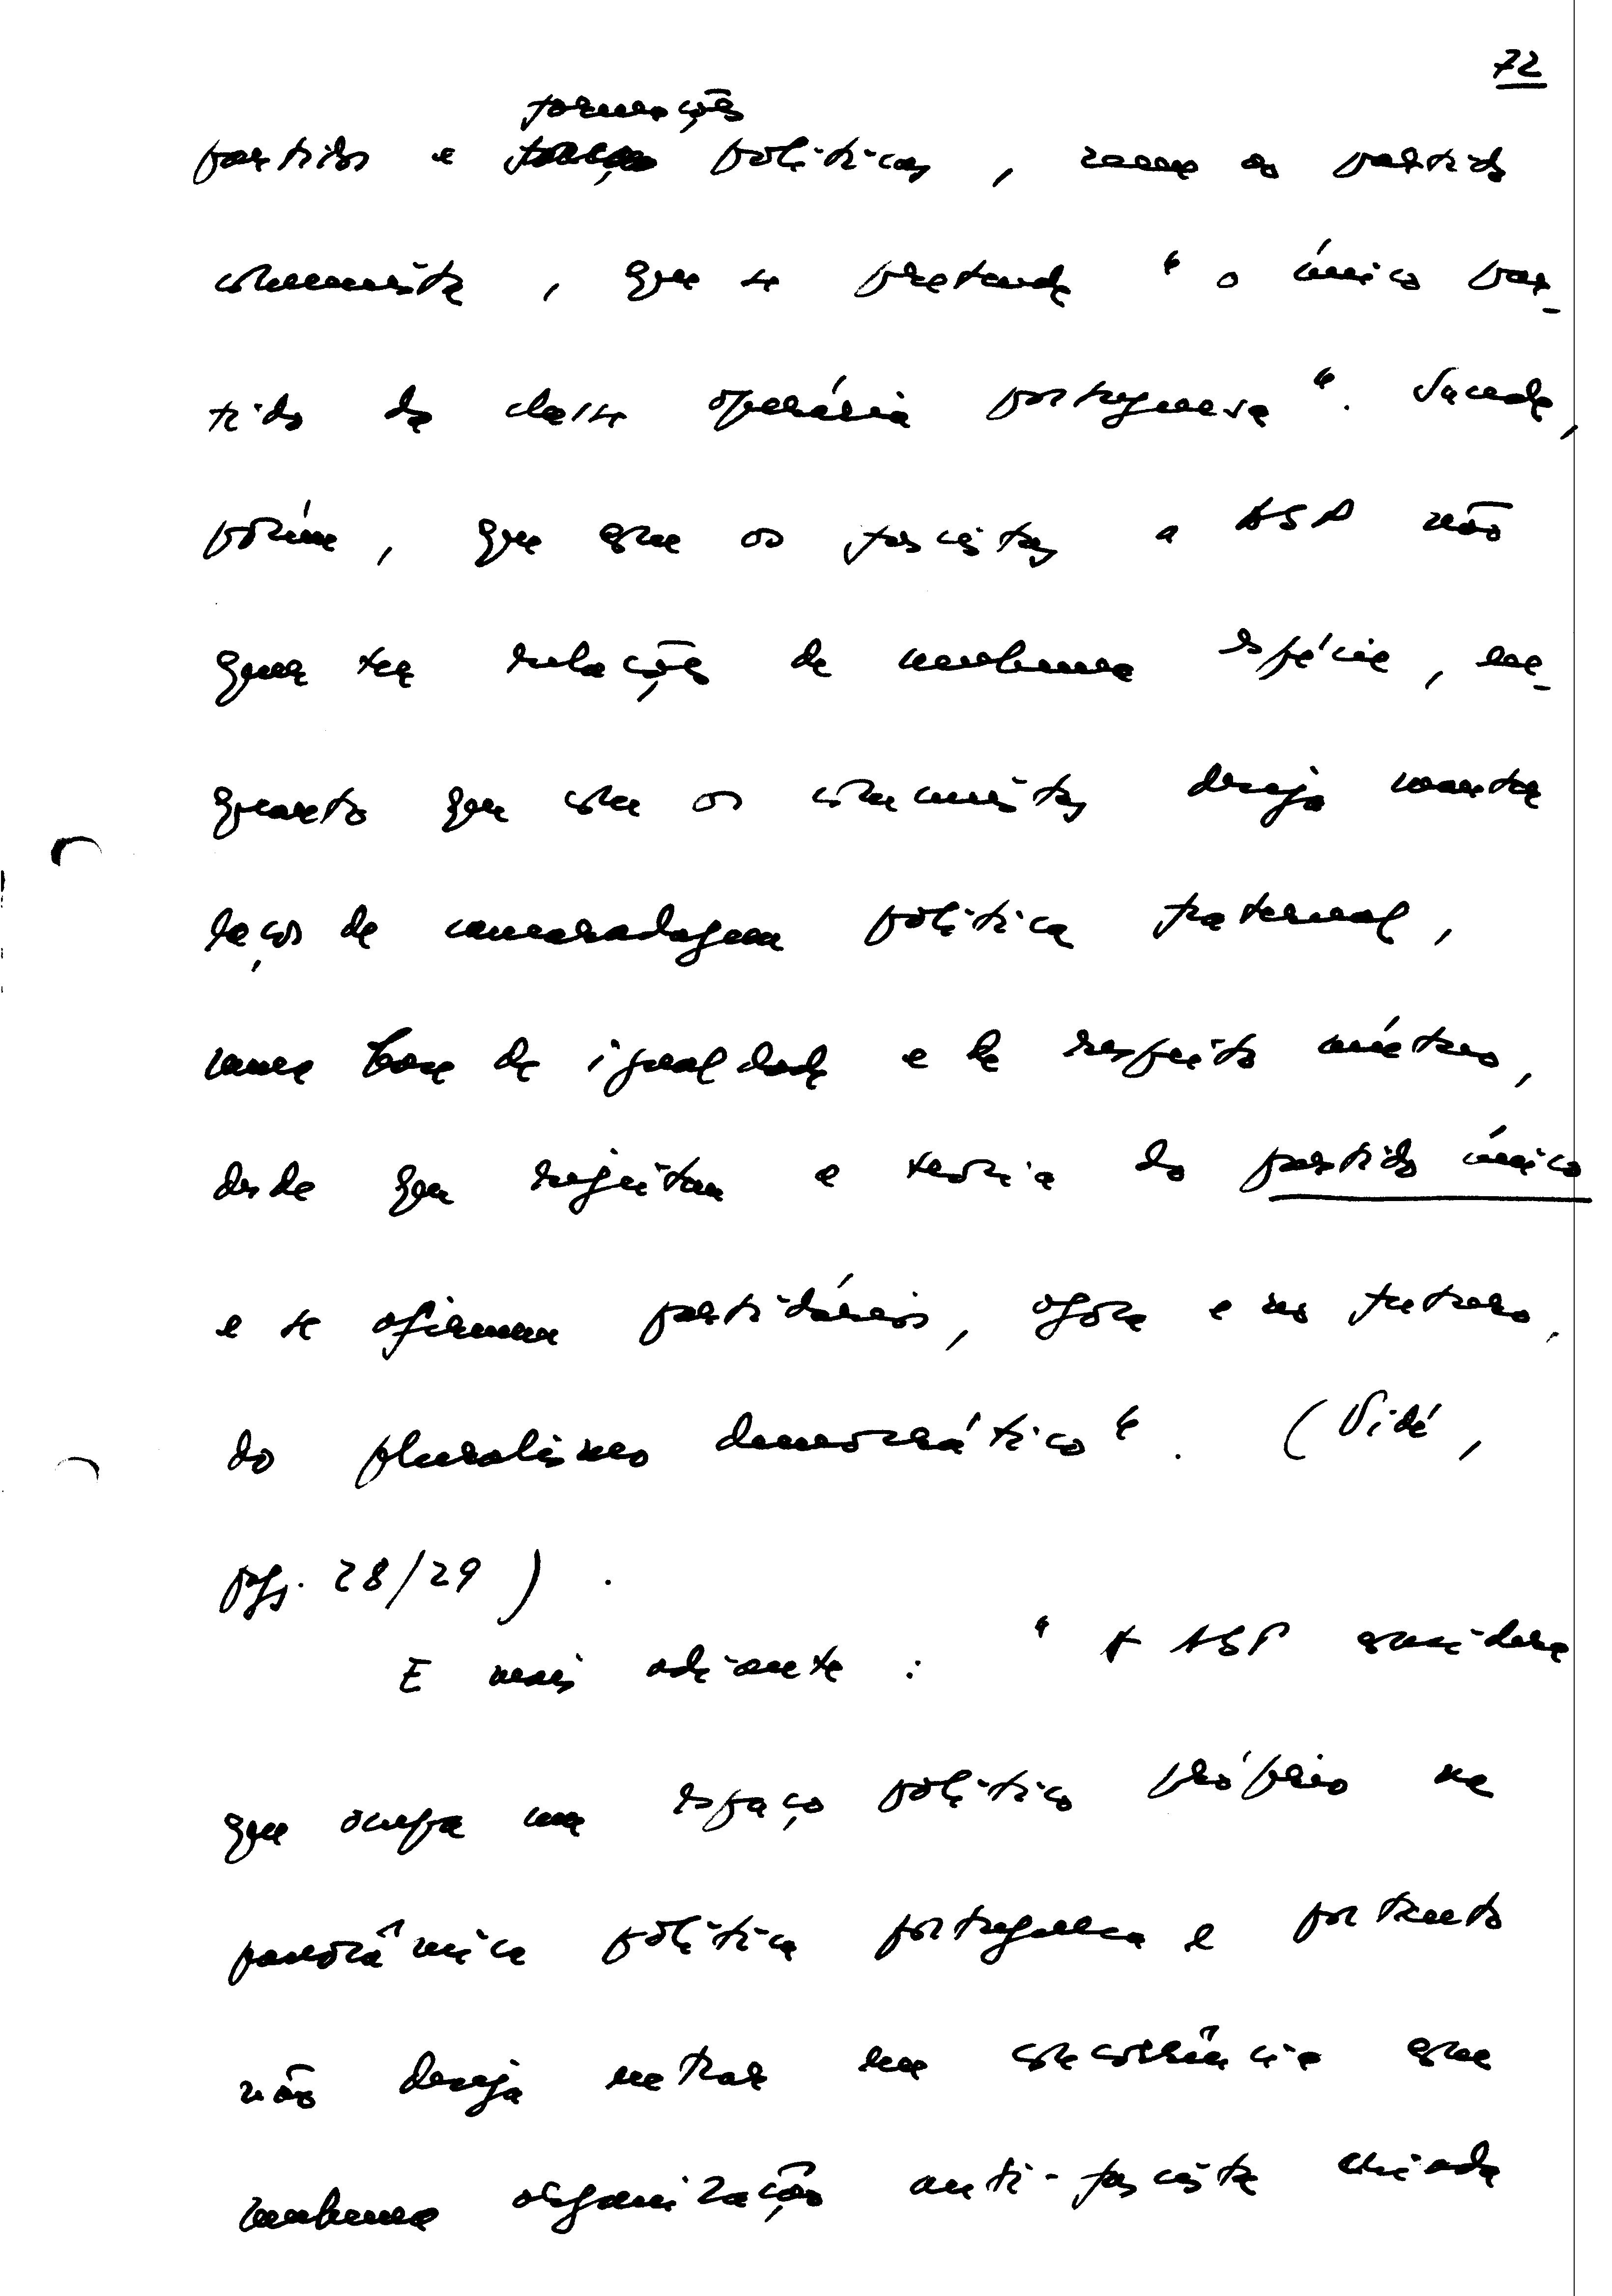 72
formações
partidos e políticas, como o partido
comunista, que se pretende "o único par-
tido da classe operária portuguesa". Sucede,
porém, que com os fascistas a ASP não
quer ter relações de nenhuma espécie, en-
quanto que com os comunistas deseja manter
laços de camaradagem política fraternal,
numa base de igualdade e de respeito mútuo,
desde que rejeitem a teoria do partido único
e se afirmem partidários, agora e no futuro,
do pluralismo democrático". (Vidé,
pgs. 28/29).
E mais adiante: "A ASP considera
que ocupa um espaço político próprio na
panorâmica política portuguesa e portanto
não deseja entrar em concorrência com
nenhuma organização anti-fascista criada